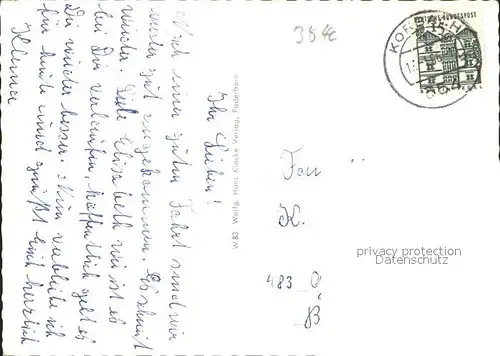 Ihr Lieben!
Nach einer guten Fahrt sind wir
gut angekommen. Es schneit
wieder. Liebe Elisabeth wie ist es
bei Dir verlaufen, hoffentlich geht es
Dir wieder besser. Nun verbleibe ich
für heute und grüßt Euch herzlich
M 83 Wolfg. Hans Klocke Verlag, Paderborn
35 €
KOR
DEUTSCHE BUNDESPOST
354
Frau
K.
483
privacy protection
Datenschutz